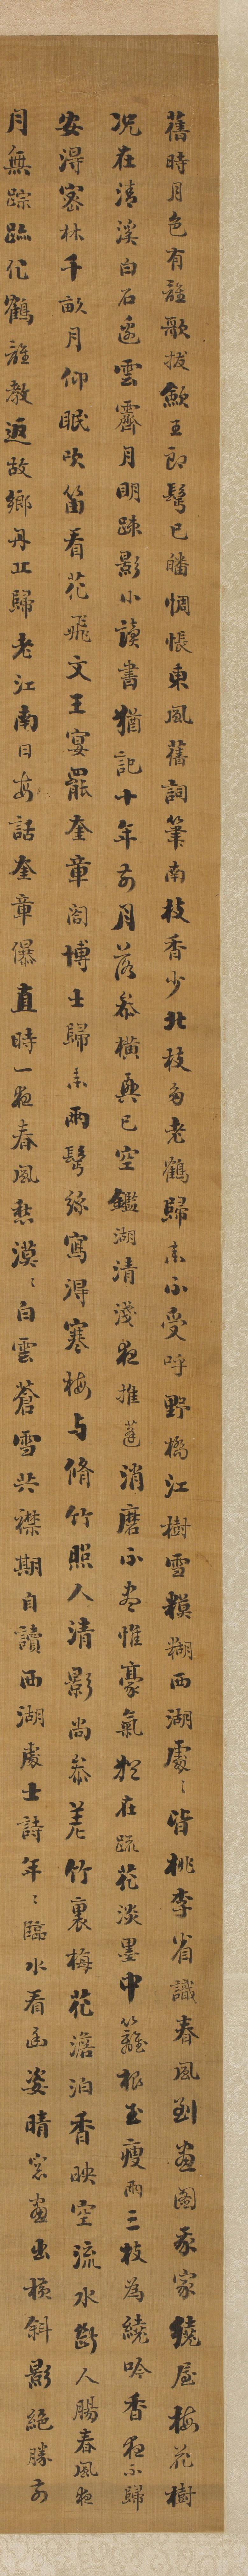 舊時月色有誰歌拔王郎鬢已皤惆悵東風舊詞筆南枝香少北枝多老鶴歸來不受呼野橋江樹雪糢糊西湖處〻皆桃李省識春風到畫圖我家繞屋梅花樹
况在清溪白石邊雲霽月明踈影小讀書猶記十年前月落參橫興已空鑑湖清淺夜推蓬消磨不盡惟豪氣猶在疏花淡墨中籬根玉瘦兩三枝為繞吟香夜不歸
安得密林千畝月仰眠吹笛看花飛文王宴罷奎章閣博士歸來兩鬢絲寫得寒梅与脩竹照人清影尚參差竹裏梅花澹泊香映空流水斷人腸春風夜
月無踪跡化鶴誰教返故鄉丹丘歸老江南日每話奎章儤直時一夜春風愁漠〻白雲蒼雪共襟期自讀西湖處士詩年〻臨水看幽姿晴窓畫出橫斜影絕勝前